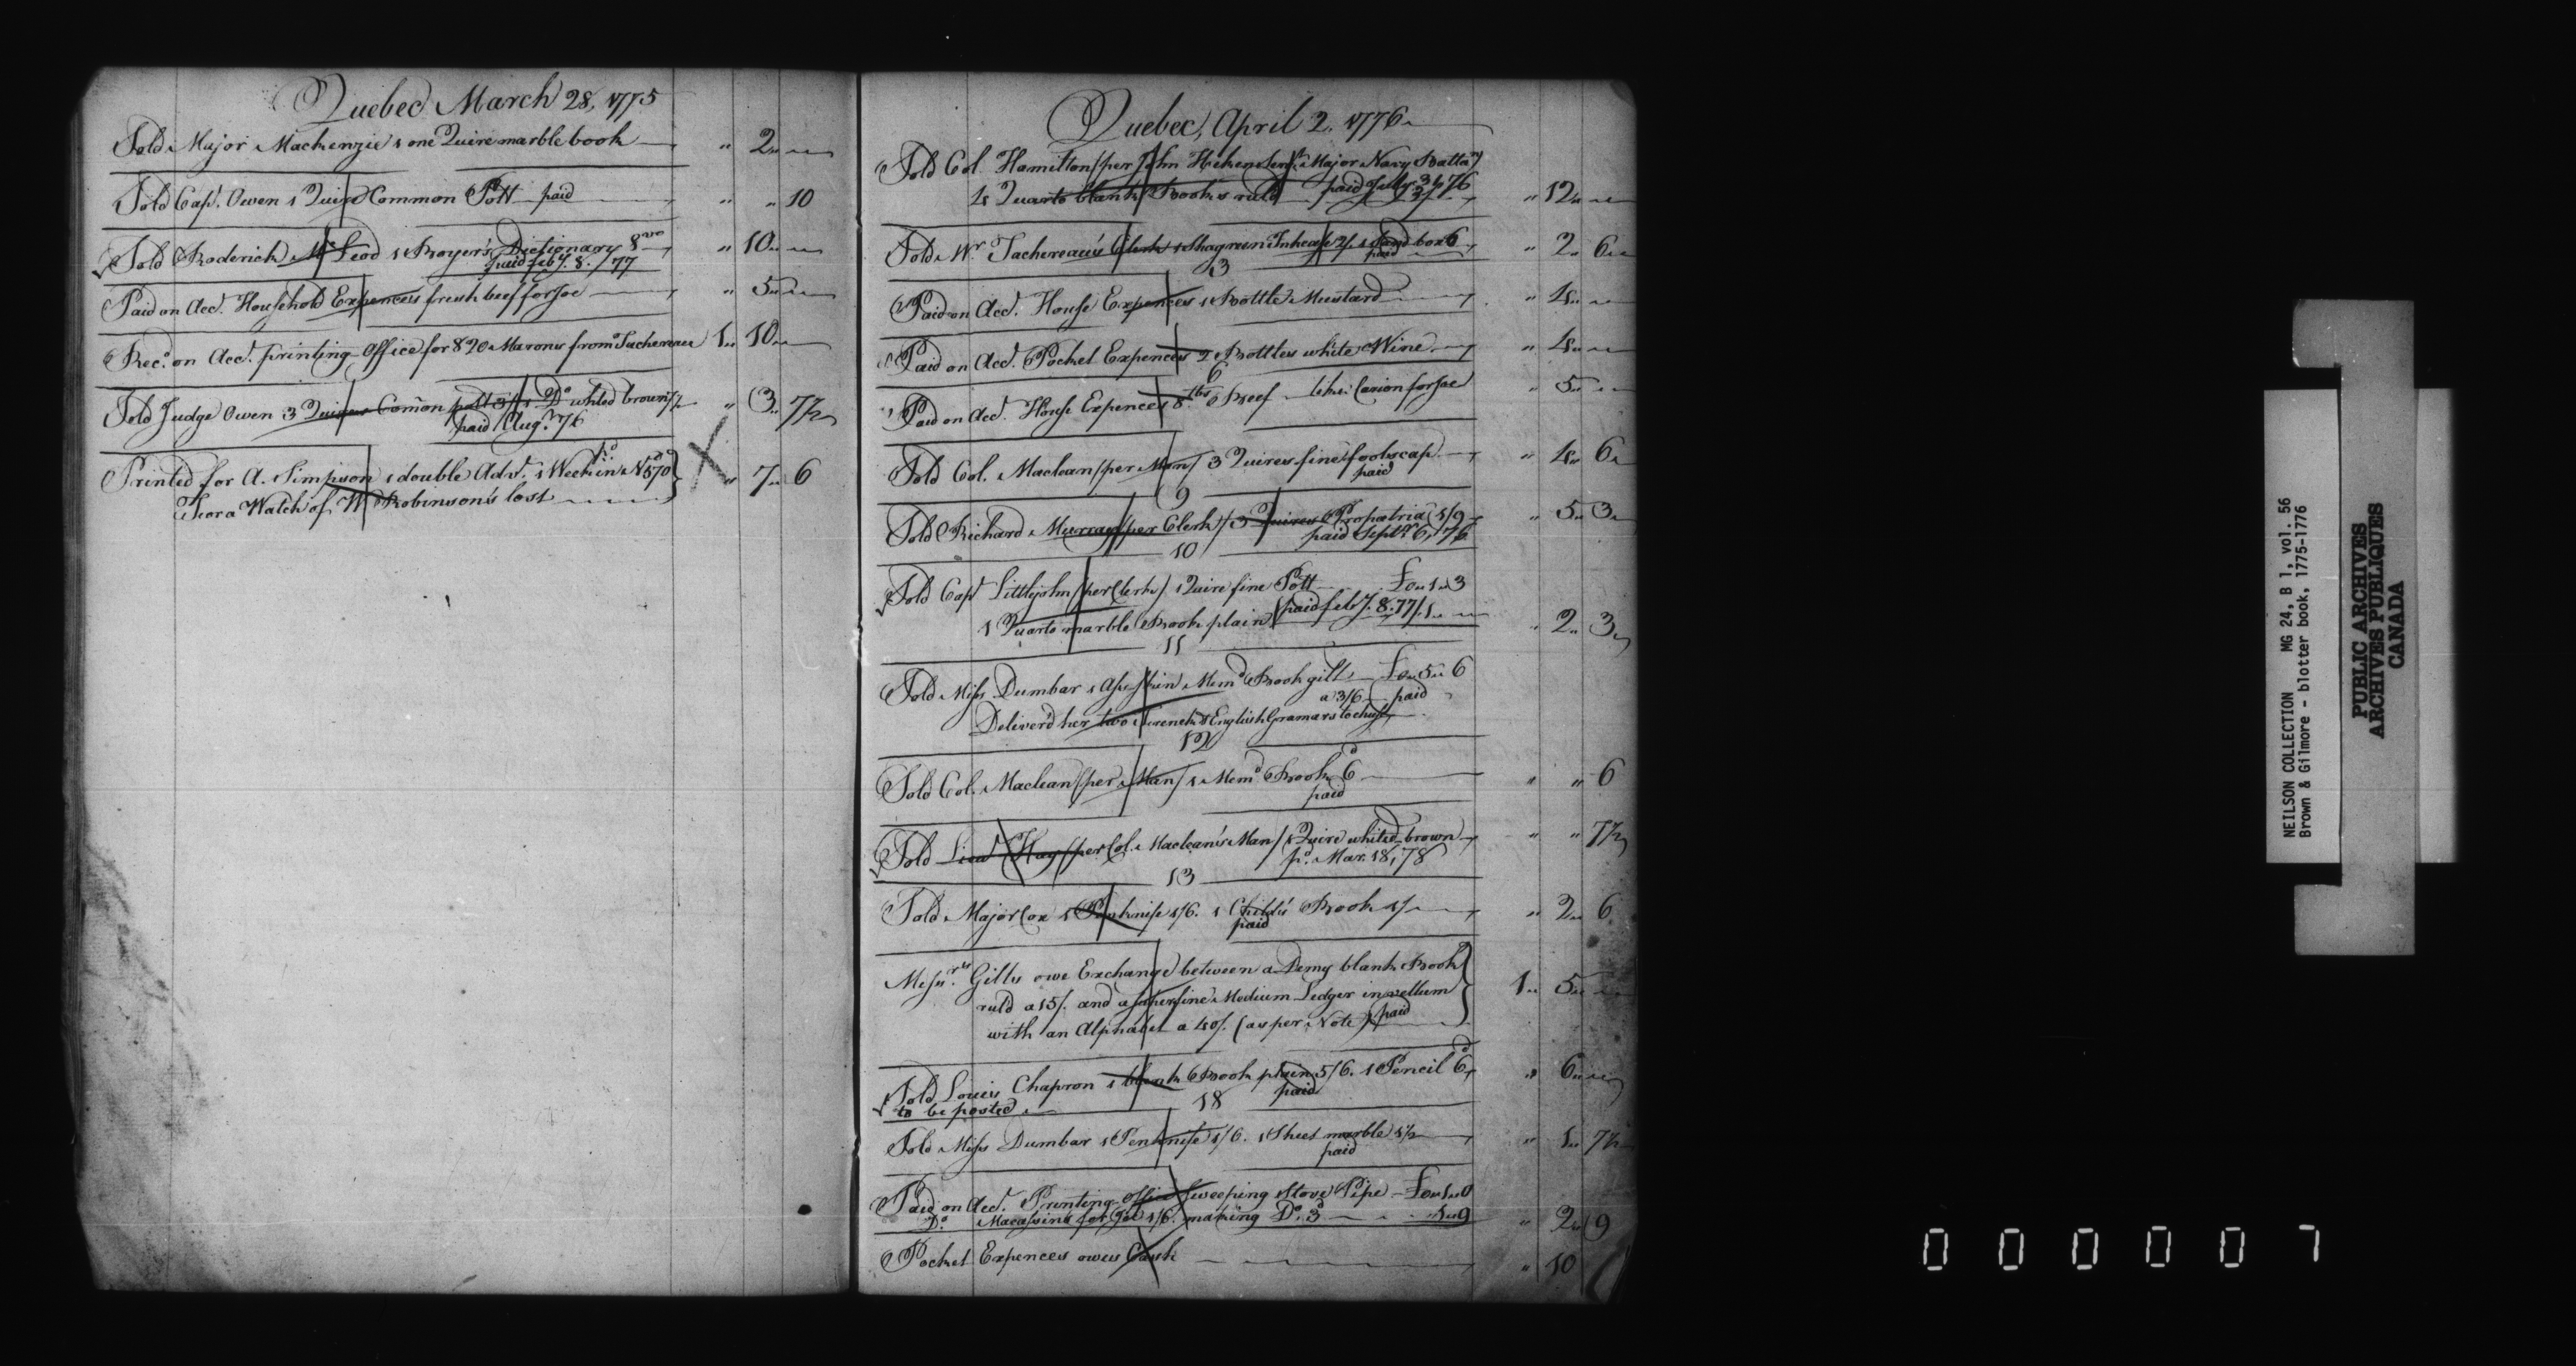 Quebec March 28, 1775
Sold Major Mackenzie 1 one Quire marble book " 2 " "
Sold Capt. Owen 1 Quire Common Pott paid " " 10
Sold Roderick McLeod 1 Boyer's Dictionary 8vo " 10 " "
paid feby. 8. /77
Paid on Acct. Household Expences fresh beef for Joe " 5 " "
Recd. on Acct. printing Office for 820 Marons from Tachereau 1 " 10 " "
Sold Judge Owen 3 Quires Comon pott 3/ 1 Do. whited brown 7½ " 3 " 7½
paid Aug. 76
Printed for A. Simpson 1 double Advt. 1 Week in No. 570 } " 7 " 6
For a Watch of W. Robinson's lost
Quebec, April 2. 1776
Sold Col. Hamilton /per John Serjt. Major Navy Battan/
4 Quarto blank Books ruld paid July 76 " 12 " "
Sold Mr. Tachereau's Clerk 1 Shagreen Inkcase 2/. 1 Sand box 6 " 2 " 6
paid
3
Paid on Acct. House Expences 1 Bottle Mustard " 4 " "
Paid on Acct. Pocket Expences 2 Bottles white Wine " 4 " "
6
Paid on Acct. House Expences 8 lbs Beef like Carion for Joe " 5 " "
Sold Col. Maclean /per Man/ 3 Quires fine foolscap " 4 " 6
paid
9
Sold Richard Murray /per Clerk/ 3 Quires Propatria 1/9 " 5 " 3
paid Septr. 6, 176
10
Sold Capt Littlejohn /per Clerk/ 1 Quire fine Pott £0 " 1 " 3
1 Quarto marble Book plain /paid feby. 8. 77/ 1 " " " 2 " 3
11
Sold Miss Dumbar 1 Ass skin Memd. Book gilt £0 " 5 " 6
a 3/6 paid
Deliverd her two french & English Gramars to chuse
12
Sold Col. Maclean /per Man/ 1 Memd. Book 6d " " 6
paid
Sold Lieut Hay /per Col. Maclean's Man/ 1 Quire whited brown " " 7½
pd. Mar. 18, 78
13
Sold Major Cox 1 Penknife 1/6. 1 Child's Book 1/ " 2 " 6
paid
Messrs. Gills owe Exchange between a Demy blank Book
ruld a 15/. and a superfine Medium Ledger in vellum } 1 " 5 " "
with an Alphabet a 40/. (as per Note) paid
Sold Louis Chapron 1 blank Book plain 5/6. 1 Pencil 6d " 6 " "
to be posted paid
18
Sold Miss Dumbar 1 Penknife 1/6. 1 Sheet marble 1½ " 1 " 7½
paid
Paid on Acct. Printing Office Sweeping Stove Pipe £0 " 1 " 0
Do. Macassins for Joe 1/6. making Do. 3d 1 " 9 " 2 " 9
Pocket Expences owes Cash " 10
NEILSON COLLECTION MG 24, B 1, vol. 56
Brown & Gilmore - blotter book, 1775-1776
PUBLIC ARCHIVES
ARCHIVES PUBLIQUES
CANADA
000007